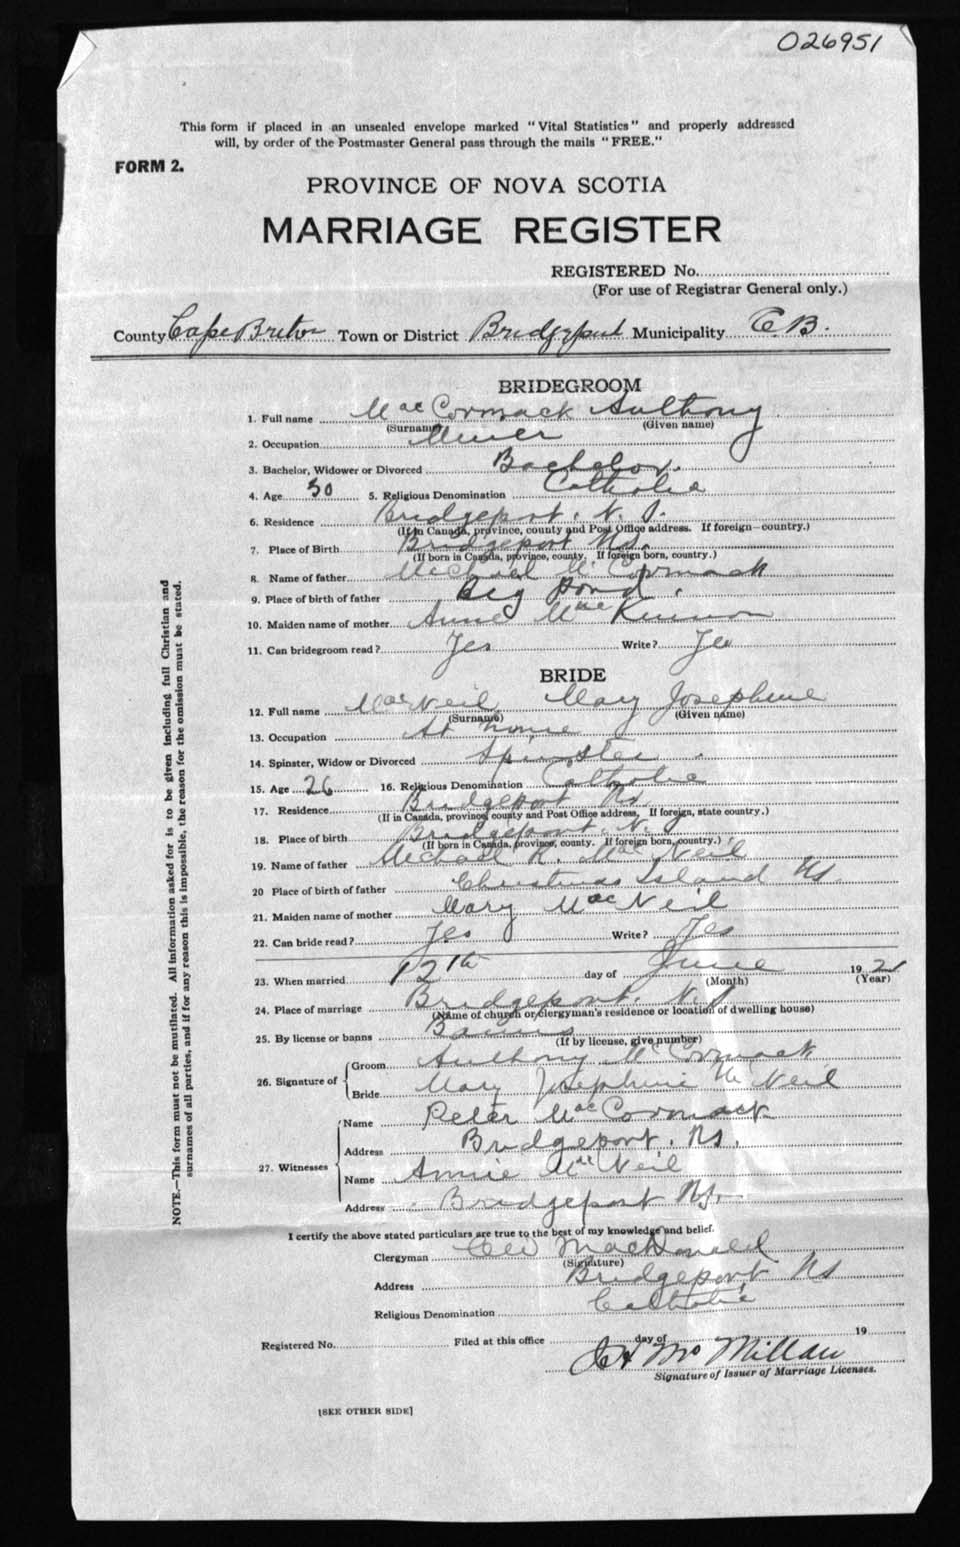 026951
This form if placed in an unsealed envelope marked "Vital Statistics" and properly addressed
will, by order of the Postmaster General pass through the mails "FREE."
FORM 2.
PROVINCE OF NOVA SCOTIA
MARRIAGE REGISTER
REGISTERED No.
(For use of Registrar General only.)
County Cape Breton Town or District Bridgeport Municipality C B.
BRIDEGROOM
1. Full name MacCormack Anthony
(Surname) (Given name)
2. Occupation Miner
3. Bachelor, Widower or Divorced Bachelor.
4. Age 30 5. Religious Denomination Catholic
6. Residence Bridgeport. N. S.
(If in Canada, province, county and Post Office address. If foreign—country.)
7. Place of Birth Bridgeport Ns.
(If born in Canada, province, county. If foreign born, country.)
8. Name of father Michael McCormack
9. Place of birth of father Big Pond.
10. Maiden name of mother Anne MacKinnon
11. Can bridegroom read? Yes Write? Yes
BRIDE
12. Full name MacNeil Mary Josephine
(Surname) (Given name)
13. Occupation At home
14. Spinster, Widow or Divorced Spinster
15. Age 26 16. Religious Denomination Catholic
17. Residence Bridgeport Ns
(If in Canada, province, county and Post Office address, If foreign, state country.)
18. Place of birth Bridgeport. N. S
(If born in Canada, province, county. If foreign born, country.)
19. Name of father Michael R. MacNeil
20 Place of birth of father Christmas Island Ns.
21. Maiden name of mother Mary MacNeil
22. Can bride read? Yes Write? Yes
23. When married 12th day of June 192
(Month) (Year)
24. Place of marriage Bridgeport. N. S
(Name of church or clergyman's residence or location of dwelling house)
25. By license or banns Banns
(If by license, give number)
26. Signature of Groom Anthony McCormack
Bride Mary Josephine McNeil
27. Witnesses Name Peter MacCormack
Address Bridgeport. Ns.
Name Annie MacNeil
Address Bridgeport Ns.
I certify the above stated particulars are true to the best of my knowledge and belief.
Clergyman MacDonald
(Signature)
Address Bridgeport Ns
Religious Denomination Catholic
Registered No. Filed at this office day of 19
McMillan
Signature of Issuer of Marriage Licenses.
[SEE OTHER SIDE]
NOTE.—This form must not be mutilated. All information asked for is to be given including full Christian and
surnames of all parties, and if for any reason this is impossible, the reason for the omission must be stated.